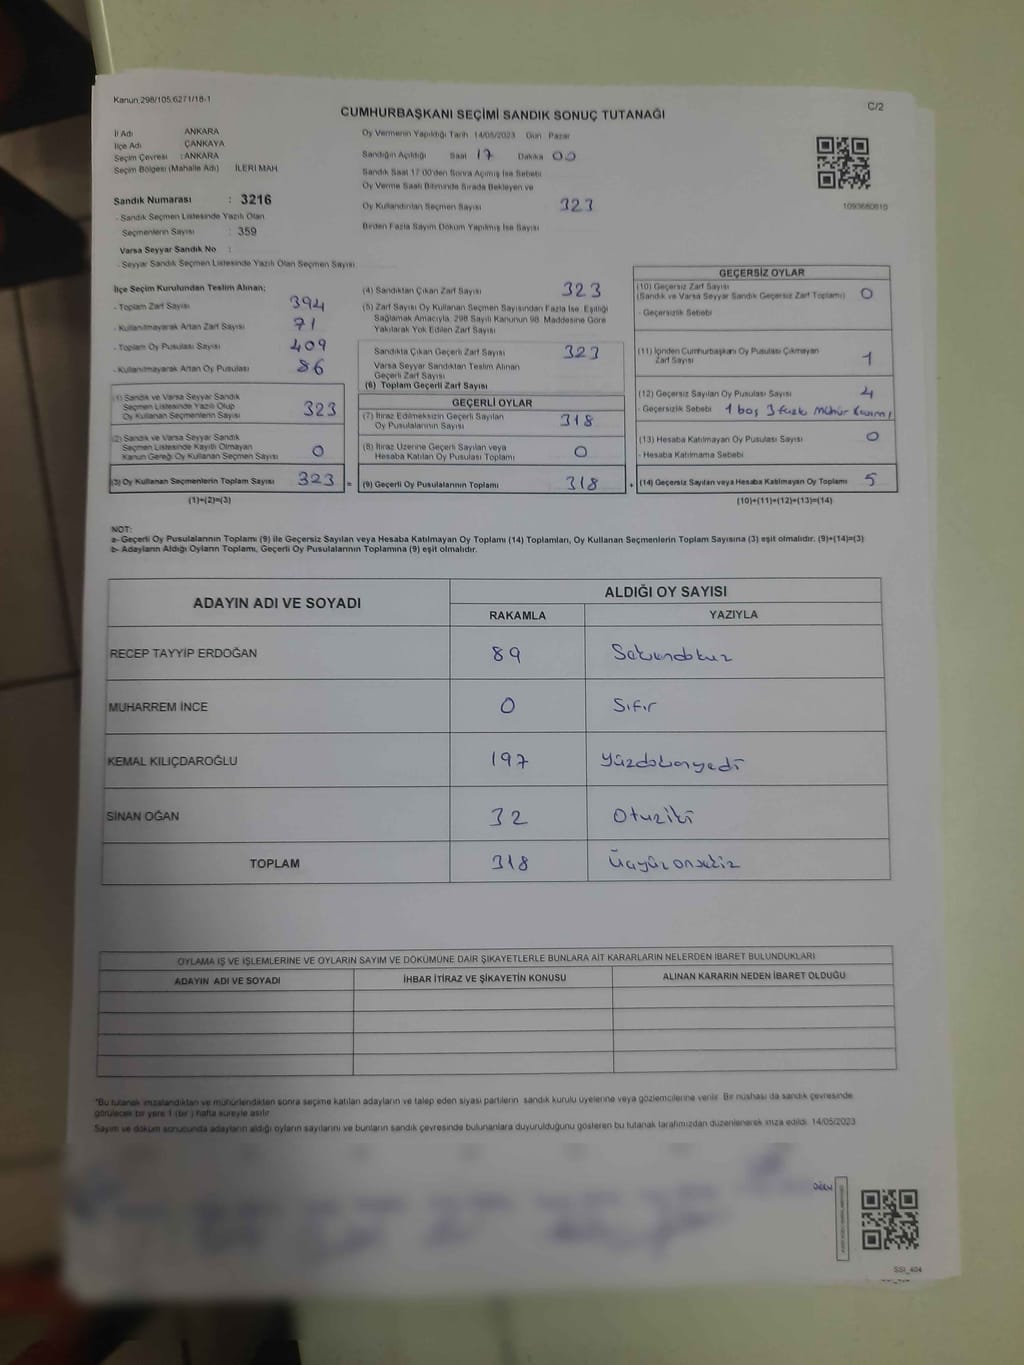 Kanun 298/105,6271/18-1
C/2
CUMHURBAŞKANI SEÇİMİ SANDIK SONUÇ TUTANAĞI
İl Adı ANKARA
İlçe Adı ÇANKAYA
Seçim Çevresi : ANKARA
Seçim Bölgesi (Mahalle Adı) İLERİ MAH.
Oy Vermenin Yapıldığı Tarih 14/05/2023 Gün Pazar
Sandığın Açıldığı Saat 17 Dakika 00
Sandık Saat 17 00'den Sonra Açılmış İse Sebebi
Oy Verme Saati Bitiminde Sırada Bekleyen ve
Oy Kullandırılan Seçmen Sayısı 323
Birden Fazla Sayım Döküm Yapılmış İse Sayısı
1093680810
Sandık Numarası : 3216
- Sandık Seçmen Listesinde Yazılı Olan
Seçmenlerin Sayısı : 359
Varsa Seyyar Sandık No :
- Seyyar Sandık Seçmen Listesinde Yazılı Olan Seçmen Sayısı
İlçe Seçim Kurulundan Teslim Alınan;
- Toplam Zarf Sayısı 394
- Kullanılmayarak Artan Zarf Sayısı 71
- Toplam Oy Pusulası Sayısı 409
- Kullanılmayarak Artan Oy Pusulası 86
(1) Sandık ve Varsa Seyyar Sandık
Seçmen Listesinde Yazılı Olup
Oy Kullanan Seçmenlerin Sayısı 323
(2) Sandık ve Varsa Seyyar Sandık
Seçmen Listesinde Kayıtlı Olmayan
Kanun Gereği Oy Kullanan Seçmen Sayısı 0
(3) Oy Kullanan Seçmenlerin Toplam Sayısı 323 =
(1)+(2)=(3)
(4) Sandıktan Çıkan Zarf Sayısı 323
(5) Zarf Sayısı Oy Kullanan Seçmen Sayısından Fazla İse, Eşitliği
Sağlamak Amacıyla, 298 Sayılı Kanunun 98. Maddesine Göre
Yakılarak Yok Edilen Zarf Sayısı
Sandıkta Çıkan Geçerli Zarf Sayısı 323
Varsa Seyyar Sandıktan Teslim Alınan
Geçerli Zarf Sayısı
(6) Toplam Geçerli Zarf Sayısı
GEÇERLİ OYLAR
(7) İtiraz Edilmeksizin Geçerli Sayılan
Oy Pusulalarının Sayısı 318
(8) İtiraz Üzerine Geçerli Sayılan veya
Hesaba Katılan Oy Pusulası Toplamı 0
(9) Geçerli Oy Pusulalarının Toplamı 318 +
GEÇERSİZ OYLAR
(10) Geçersiz Zarf Sayısı
(Sandık ve Varsa Seyyar Sandık Geçersiz Zarf Toplamı) 0
- Geçersizlik Sebebi
(11) İçinden Cumhurbaşkanı Oy Pusulası Çıkmayan
Zarf Sayısı 1
(12) Geçersiz Sayılan Oy Pusulası Sayısı 4
- Geçersizlik Sebebi 1 boş 3 fazla mühür
(13) Hesaba Katılmayan Oy Pusulası Sayısı 0
- Hesaba Katılmama Sebebi
(14) Geçersiz Sayılan veya Hesaba Katılmayan Oy Toplamı 5
(10)+(11)+(12)+(13)=(14)
NOT:
a- Geçerli Oy Pusulalarının Toplamı (9) ile Geçersiz Sayılan veya Hesaba Katılmayan Oy Toplamı (14) Toplamları, Oy Kullanan Seçmenlerin Toplam Sayısına (3) eşit olmalıdır. (9)+(14)=(3)
b- Adayların Aldığı Oyların Toplamı, Geçerli Oy Pusulalarının Toplamına (9) eşit olmalıdır.
ADAYIN ADI VE SOYADI
ALDIĞI OY SAYISI
RAKAMLA YAZIYLA
RECEP TAYYİP ERDOĞAN 89 Seksendokuz
MUHARREM İNCE 0 Sıfır
KEMAL KILIÇDAROĞLU 197 Yüzdoksanyedi
SİNAN OĞAN 32 Otuziki
TOPLAM 318 Üçyüzonsekiz
OYLAMA İŞ VE İŞLEMLERİNE VE OYLARIN SAYIM VE DÖKÜMÜNE DAİR ŞİKAYETLERLE BUNLARA AİT KARARLARIN NELERDEN İBARET BULUNDUKLARI
ADAYIN ADI VE SOYADI İHBAR İTİRAZ VE ŞİKAYETİN KONUSU ALINAN KARARIN NEDEN İBARET OLDUĞU
*Bu tutanak imzalandıktan ve mühürlendikten sonra seçime katılan adayların ve talep eden siyasi partilerin sandık kurulu üyelerine veya gözlemcilerine verilir. Bir nüshası da sandık çevresinde
görülecek bir yere 1 (bir) hafta süreyle asılır.
Sayım ve döküm sonucunda adayların aldığı oyların sayılarını ve bunların sandık çevresinde bulunanlara duyurulduğunu gösteren bu tutanak tarafımızdan düzenlenerek imza edildi. 14/05/2023
SSI_404